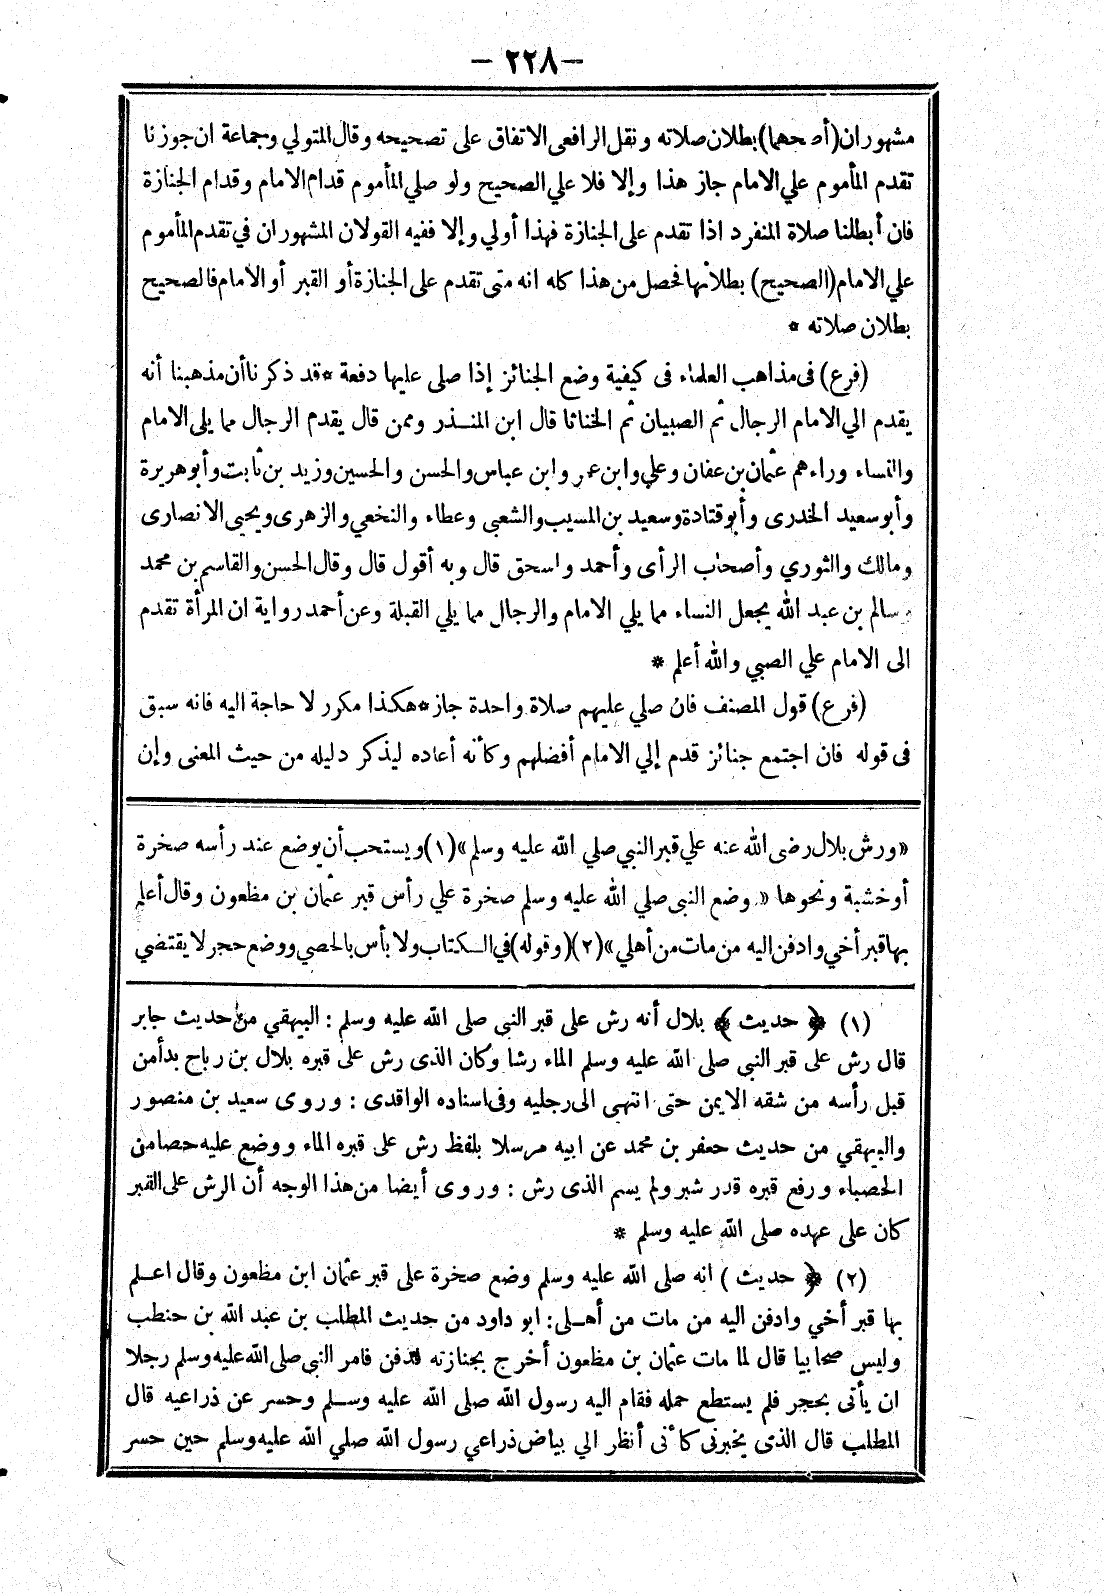 — ٢٢٨ —
مشهوران (أصحهما) بطلان صلاته ونقل الرافعى الاتفاق على تصحيحه وقال المتولي وجماعة ان جوزنا
تقدم المأموم علي الامام جاز هذا وإلا فلا علي الصحيح ولو صلي المأموم قدام الامام وقدام الجنازة
فان أبطلنا صلاة المنفرد اذا تقدم على الجنازة فهذا أولي وإلا ففيه القولان المشهوران في تقدم المأموم
علي الامام (الصحيح) بطلانها فحصل من هذا كله انه متى تقدم على الجنازة أو القبر أو الامام فالصحيح
بطلان صلاته *
(فرع) فى مذاهب العلماء فى كيفية وضع الجنائز إذا صلى عليها دفعة * قد ذكرنا أن مذهبنا أنه
يقدم الي الامام الرجال ثم الصبيان ثم الخناثا قال ابن المنـذر وممن قال يقدم الرجال مما يلى الامام
والنساء وراءهم عثمان بن عفان وعلي وابن عمر وابن عباس والحسن والحسين وزيد بن ثابت وأبو هريرة
وأبو سعيد الخدرى وأبو قتادة وسعيد بن المسيب والشعبي وعطاء والنخعي والزهرى ويحيى الانصارى
ومالك والثوري وأصحاب الرأى وأحمد واسحق قال وبه أقول قال وقال الحسن والقاسم بن محمد
وسالم بن عبد الله يجعل النساء مما يلي الامام والرجال مما يلي القبلة وعن أحمد رواية ان المرأة تقدم
الى الامام علي الصبي والله أعلم *
(فرع) قول المصنف فان صلي عليهم صلاة واحدة جاز * هكذا مكرر لا حاجة اليه فانه سبق
فى قوله فان اجتمع جنائز قدم إلي الامام أفضلهم وكأنه أعاده ليذكر دليله من حيث المعنى وإن
«ورش بلال رضى الله عنه علي قبر النبي صلي الله عليه وسلم» (١) ويستحب أن يوضع عند رأسه صخرة
أو خشبة ونحوها «وضع النبى صلي الله عليه وسلم صخرة علي رأس قبر عثمان بن مظعون وقال أعلم
بها قبر أخي وادفن اليه من مات من أهلي» (٢) (وقوله) في الكتاب ولا بأس بالحصي ووضع حجر لا يقتضي
(١) ﴿ حديث ﴾ بلال أنه رش على قبر النبي صلى الله عليه وسلم : البيهقي من حديث جابر
قال رش على قبر النبي صلى الله عليه وسلم الماء رشا وكان الذى رش على قبره بلال بن رباح بدأ من
قبل رأسه من شقه الايمن حتى انتهى الى رجليه وفى اسناده الواقدى : وروى سعيد بن منصور
والبيهقي من حديث جعفر بن محمد عن ابيه مرسلا بلفظ رش على قبره الماء ووضع عليه حصا من
الحصباء ورفع قبره قدر شبر ولم يسم الذى رش : وروى أيضا من هذا الوجه أن الرش على القبر
كان على عهده صلى الله عليه وسلم *
(٢) ﴿ حديث ) انه صلى الله عليه وسلم وضع صخرة على قبر عثمان ابن مظعون وقال اعـلم
بها قبر أخي وادفن اليه من مات من أهـلى : ابو داود من حديث المطلب بن عبد الله بن حنطب
وليس صحابيا قال لما مات عثمان بن مظعون أخرج بجنازته فدفن فامر النبي صلى الله عليه وسلم رجلا
ان يأتى بحجر فلم يستطع حمله فقام اليه رسول الله صلى الله عليه وسـلم وحسر عن ذراعيه قال
المطلب قال الذى يخبرنى كأنى أنظر الي بياض ذراعي رسول الله صلي الله عليه وسلم حين حسر